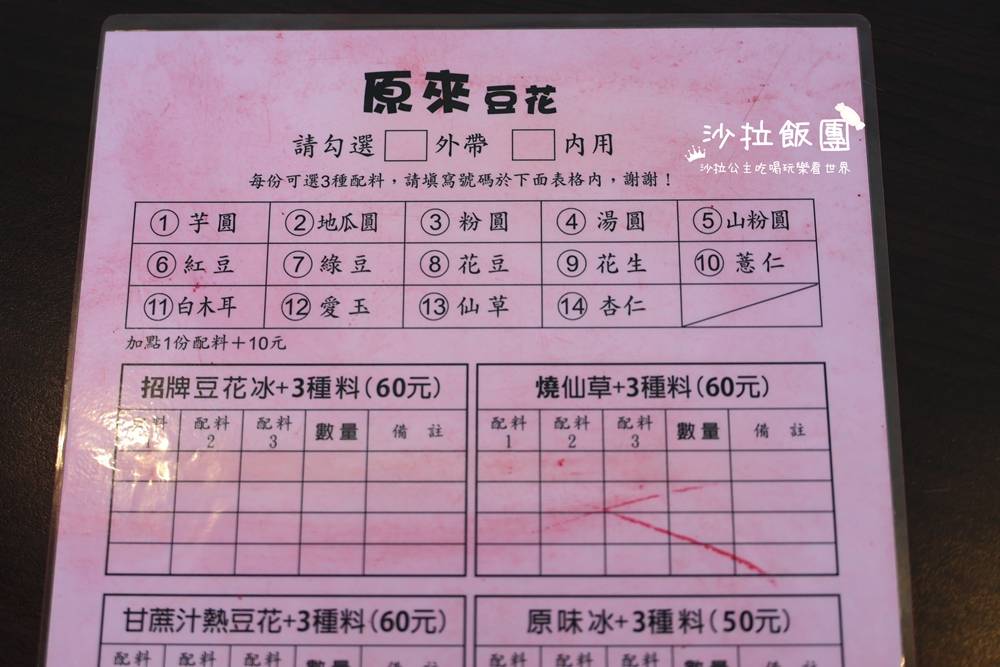 原來豆花
請勾選 外帶 內用
沙拉飯團
沙拉公主吃喝玩樂看世界
每份可選3種配料，請填寫號碼於下面表格內，謝謝！
①芋圓 ②地瓜圓 ③粉圓 ④湯圓 ⑤山粉圓
⑥紅豆 ⑦綠豆 ⑧花豆 ⑨花生 ⑩薏仁
⑪白木耳 ⑫愛玉 ⑬仙草 ⑭杏仁
加點1份配料＋10元
招牌豆花冰+3種料(60元)
配料1 配料2 配料3 數量 備註
燒仙草+3種料(60元)
配料1 配料2 配料3 數量 備註
甘蔗汁熱豆花+3種料(60元)
配料 配料 配料 數量 備註
原味冰+3種料(50元)
配料 配料 配料 數量 備註